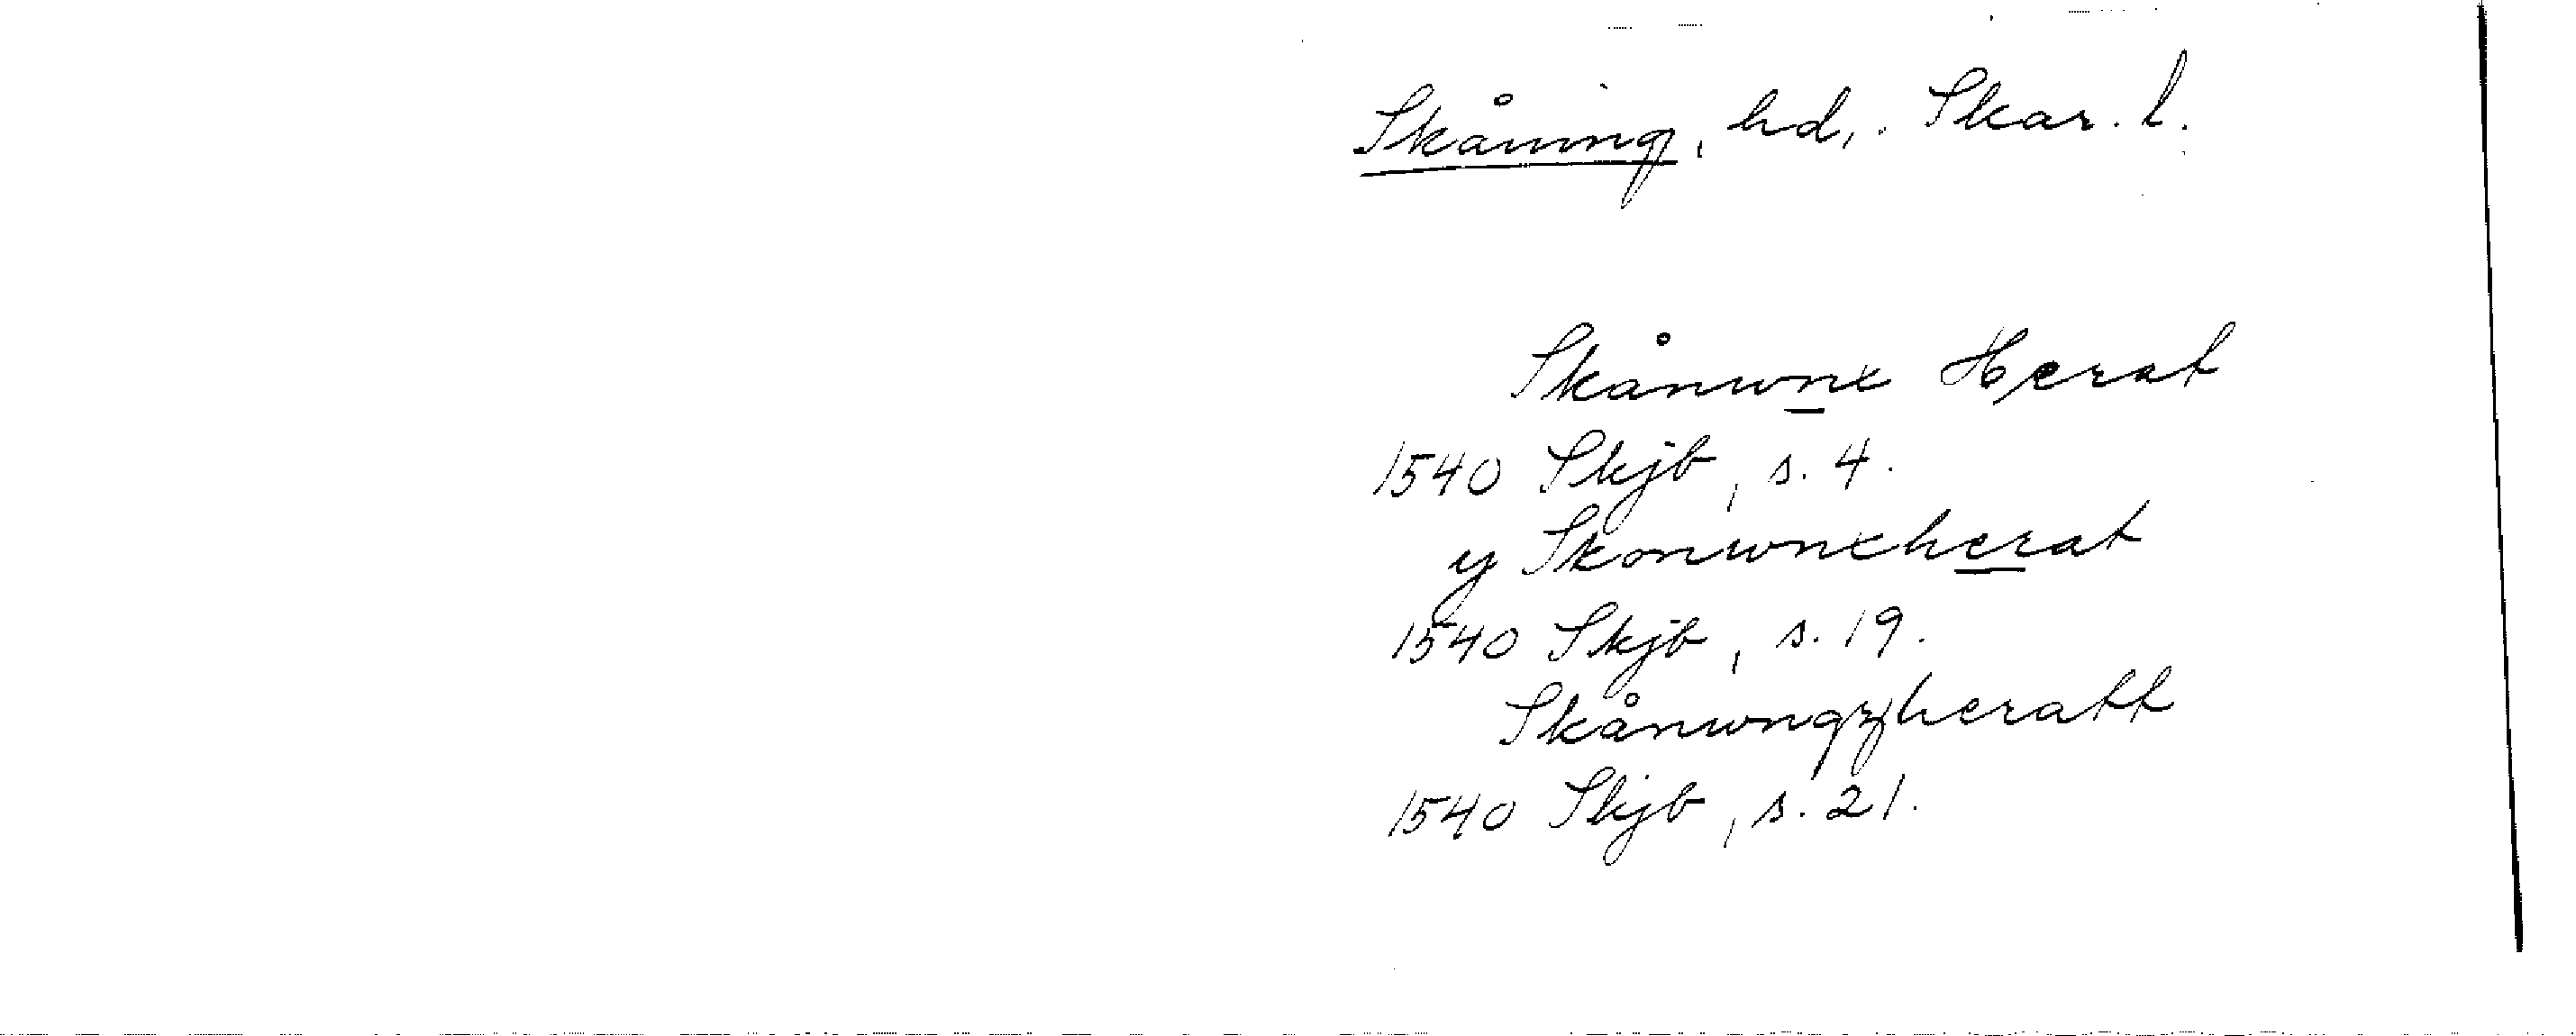 Skåning, hd, Skar. l.
Skånwnx Herat
1540 Skjb, s. 4.
y Skonwnxherat
1540 Skjb, s. 19.
Skånwngzheratt
1540 Skjb, s. 21.